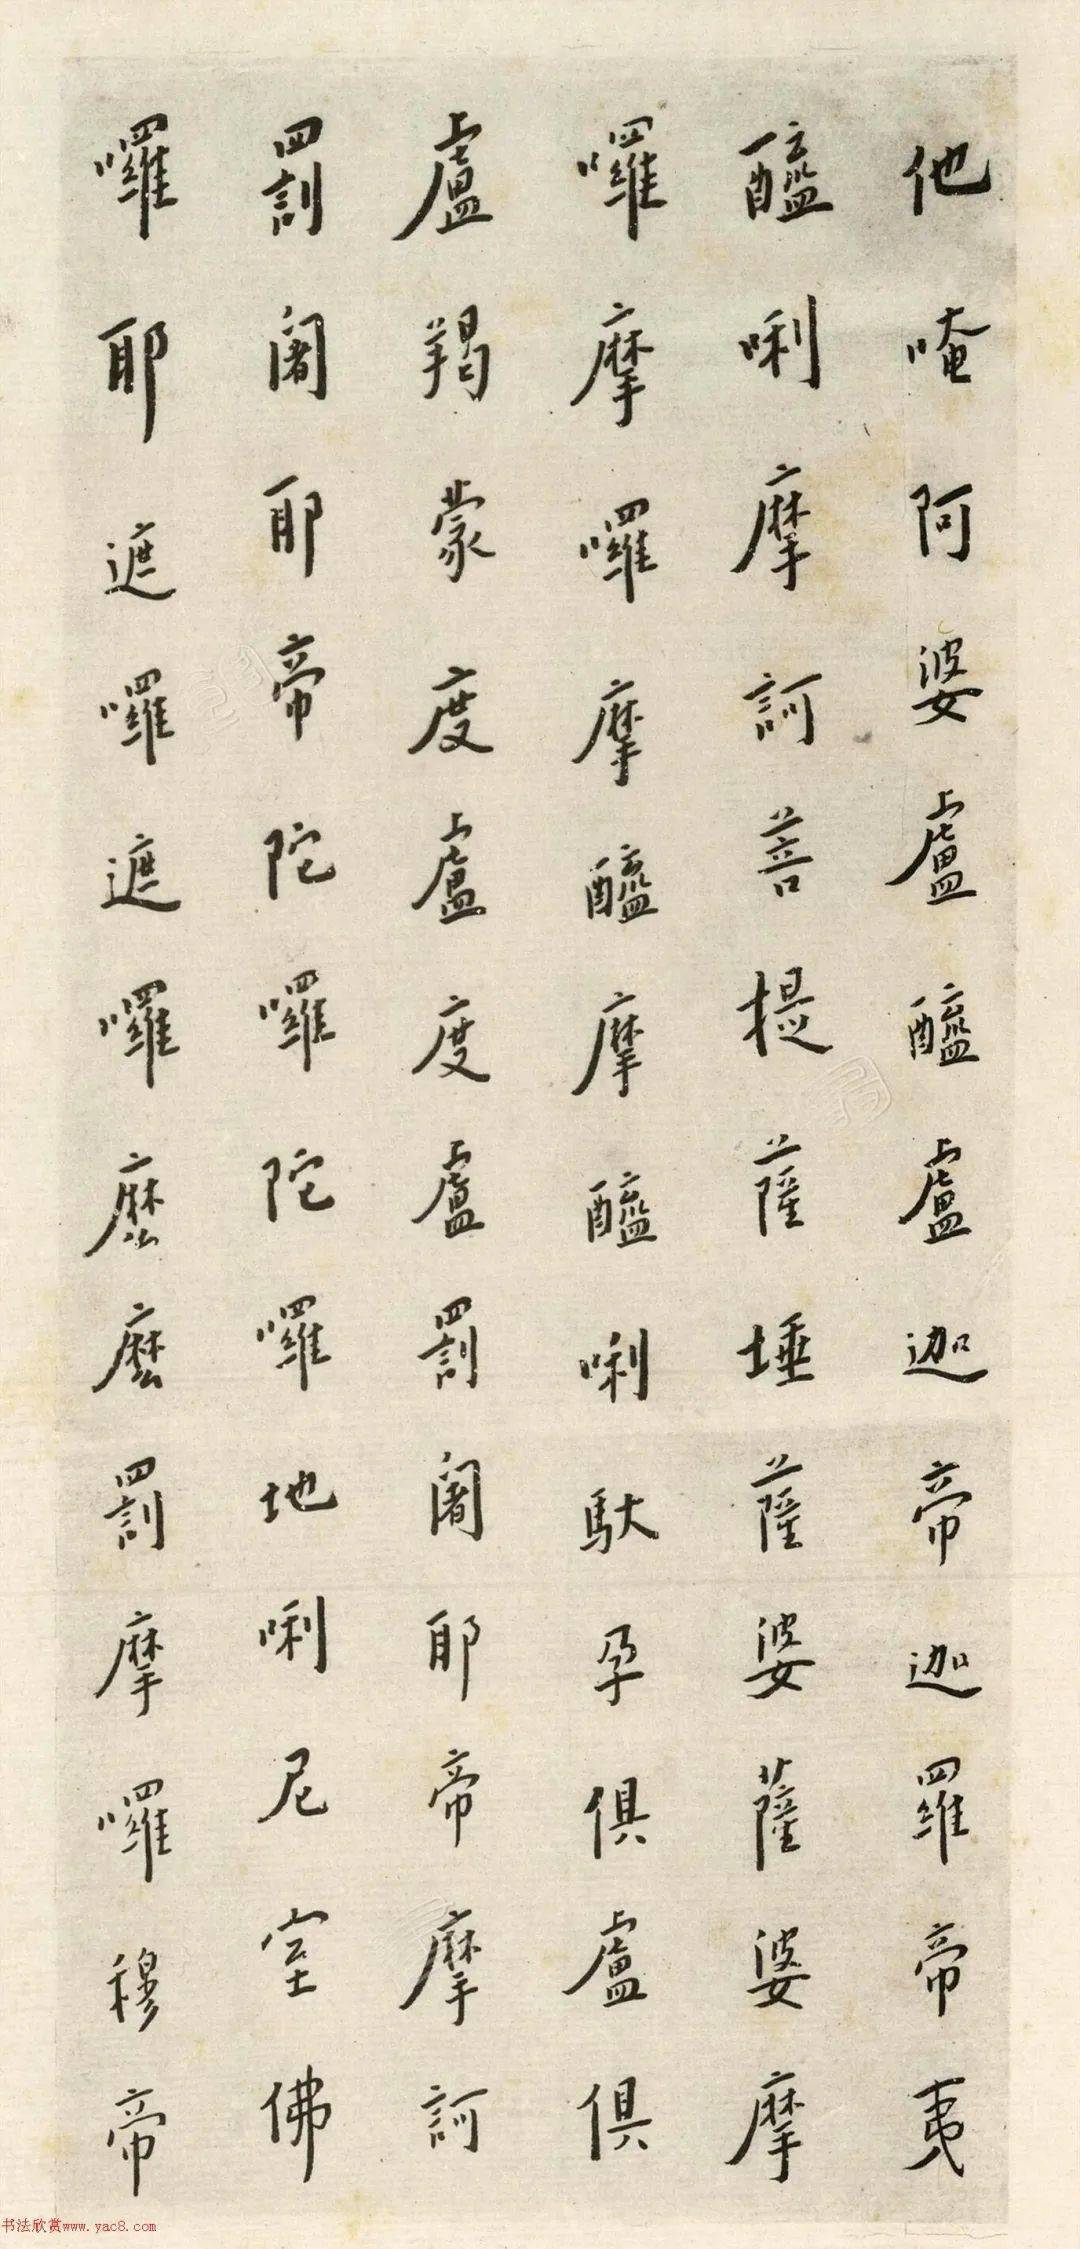 他唵阿婆盧醯盧迦帝迦羅帝夷
醯唎摩訶菩提薩埵薩婆薩婆摩
囉摩囉摩醯摩醯唎馱孕俱盧俱
盧羯蒙度盧度盧罰闍耶帝摩訶
罰闍耶帝陀囉陀囉地唎尼室佛
囉耶遮囉遮囉麼麼罰摩囉穆帝
书法欣赏www.yac8.com